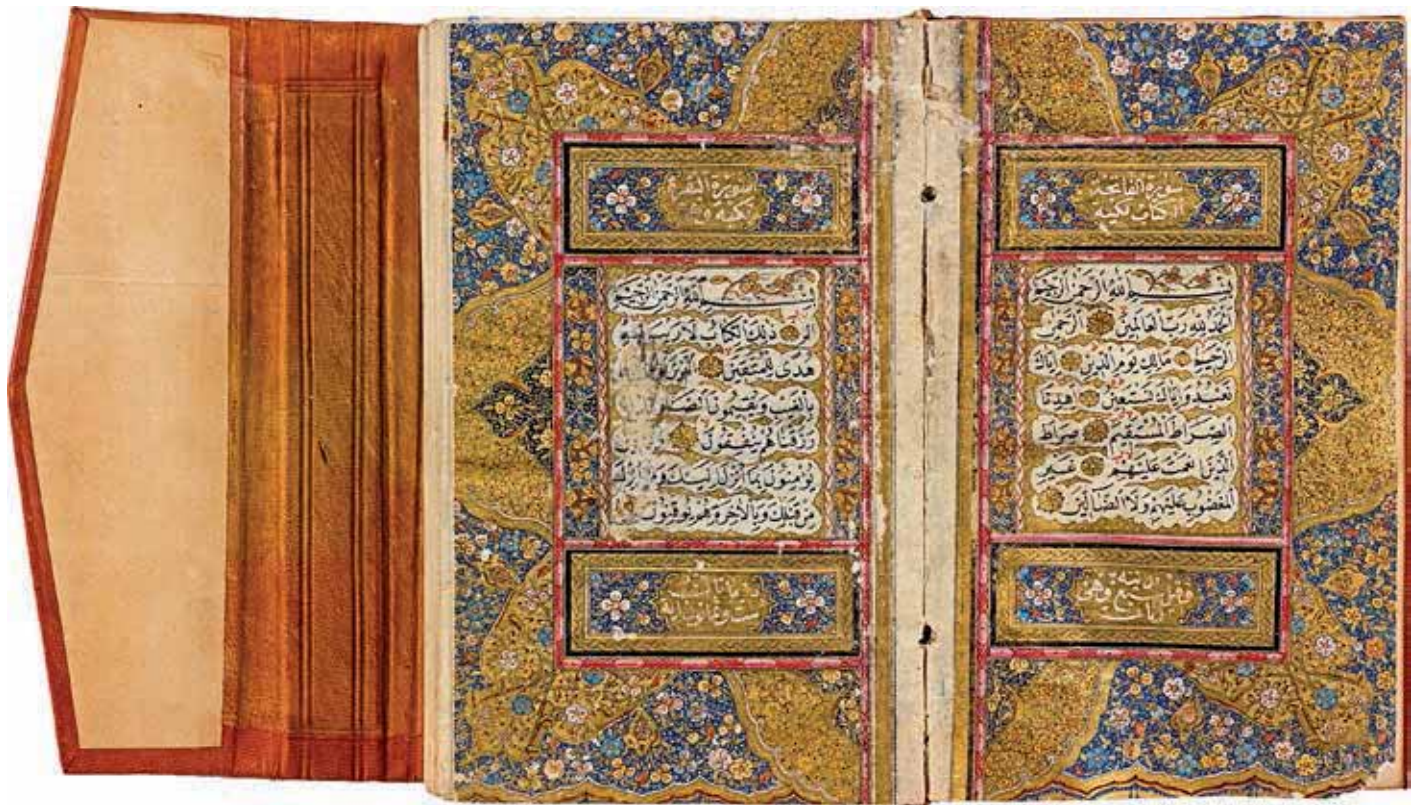 سورة الفاتحة
الكتاب مكية
بسم الله الرحمن الرحيم
الحمد لله رب العالمين الرحمن
الرحيم مالك يوم الدين اياك
نعبد واياك نستعين اهدنا
الصراط المستقيم صراط
الذين انعمت عليهم غير
المغضوب عليهم ولا الضالين
وهى سبع
ايات
سورة البقرة
مكية
بسم الله الرحمن الرحيم
الم ذلك الكتاب لا ريب فيه
هدى للمتقين الذين يؤمنون
بالغيب ويقيمون الصلوة
رزقناهم ينفقون
يؤمنون بما انزل اليك وما انزل
من قبلك وبالاخرة هم يوقنون